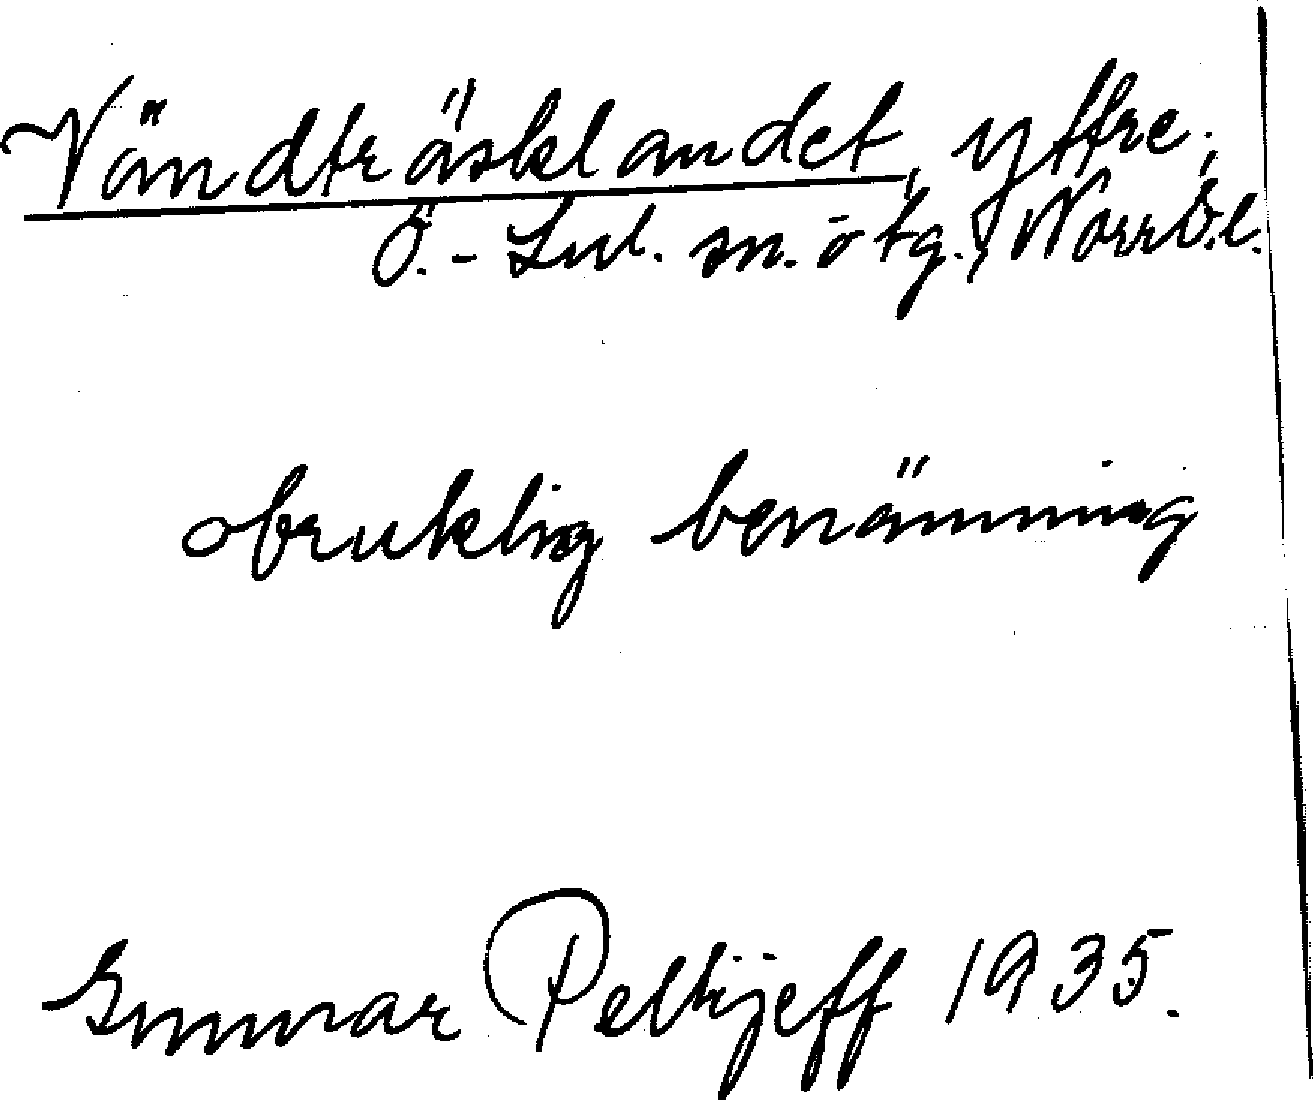 Vändträsklandet, yttre;
Ö.-Lul. sn. ö tg., Norrb.l.
obruklig benämning
Gunnar Pellijeff 1935.